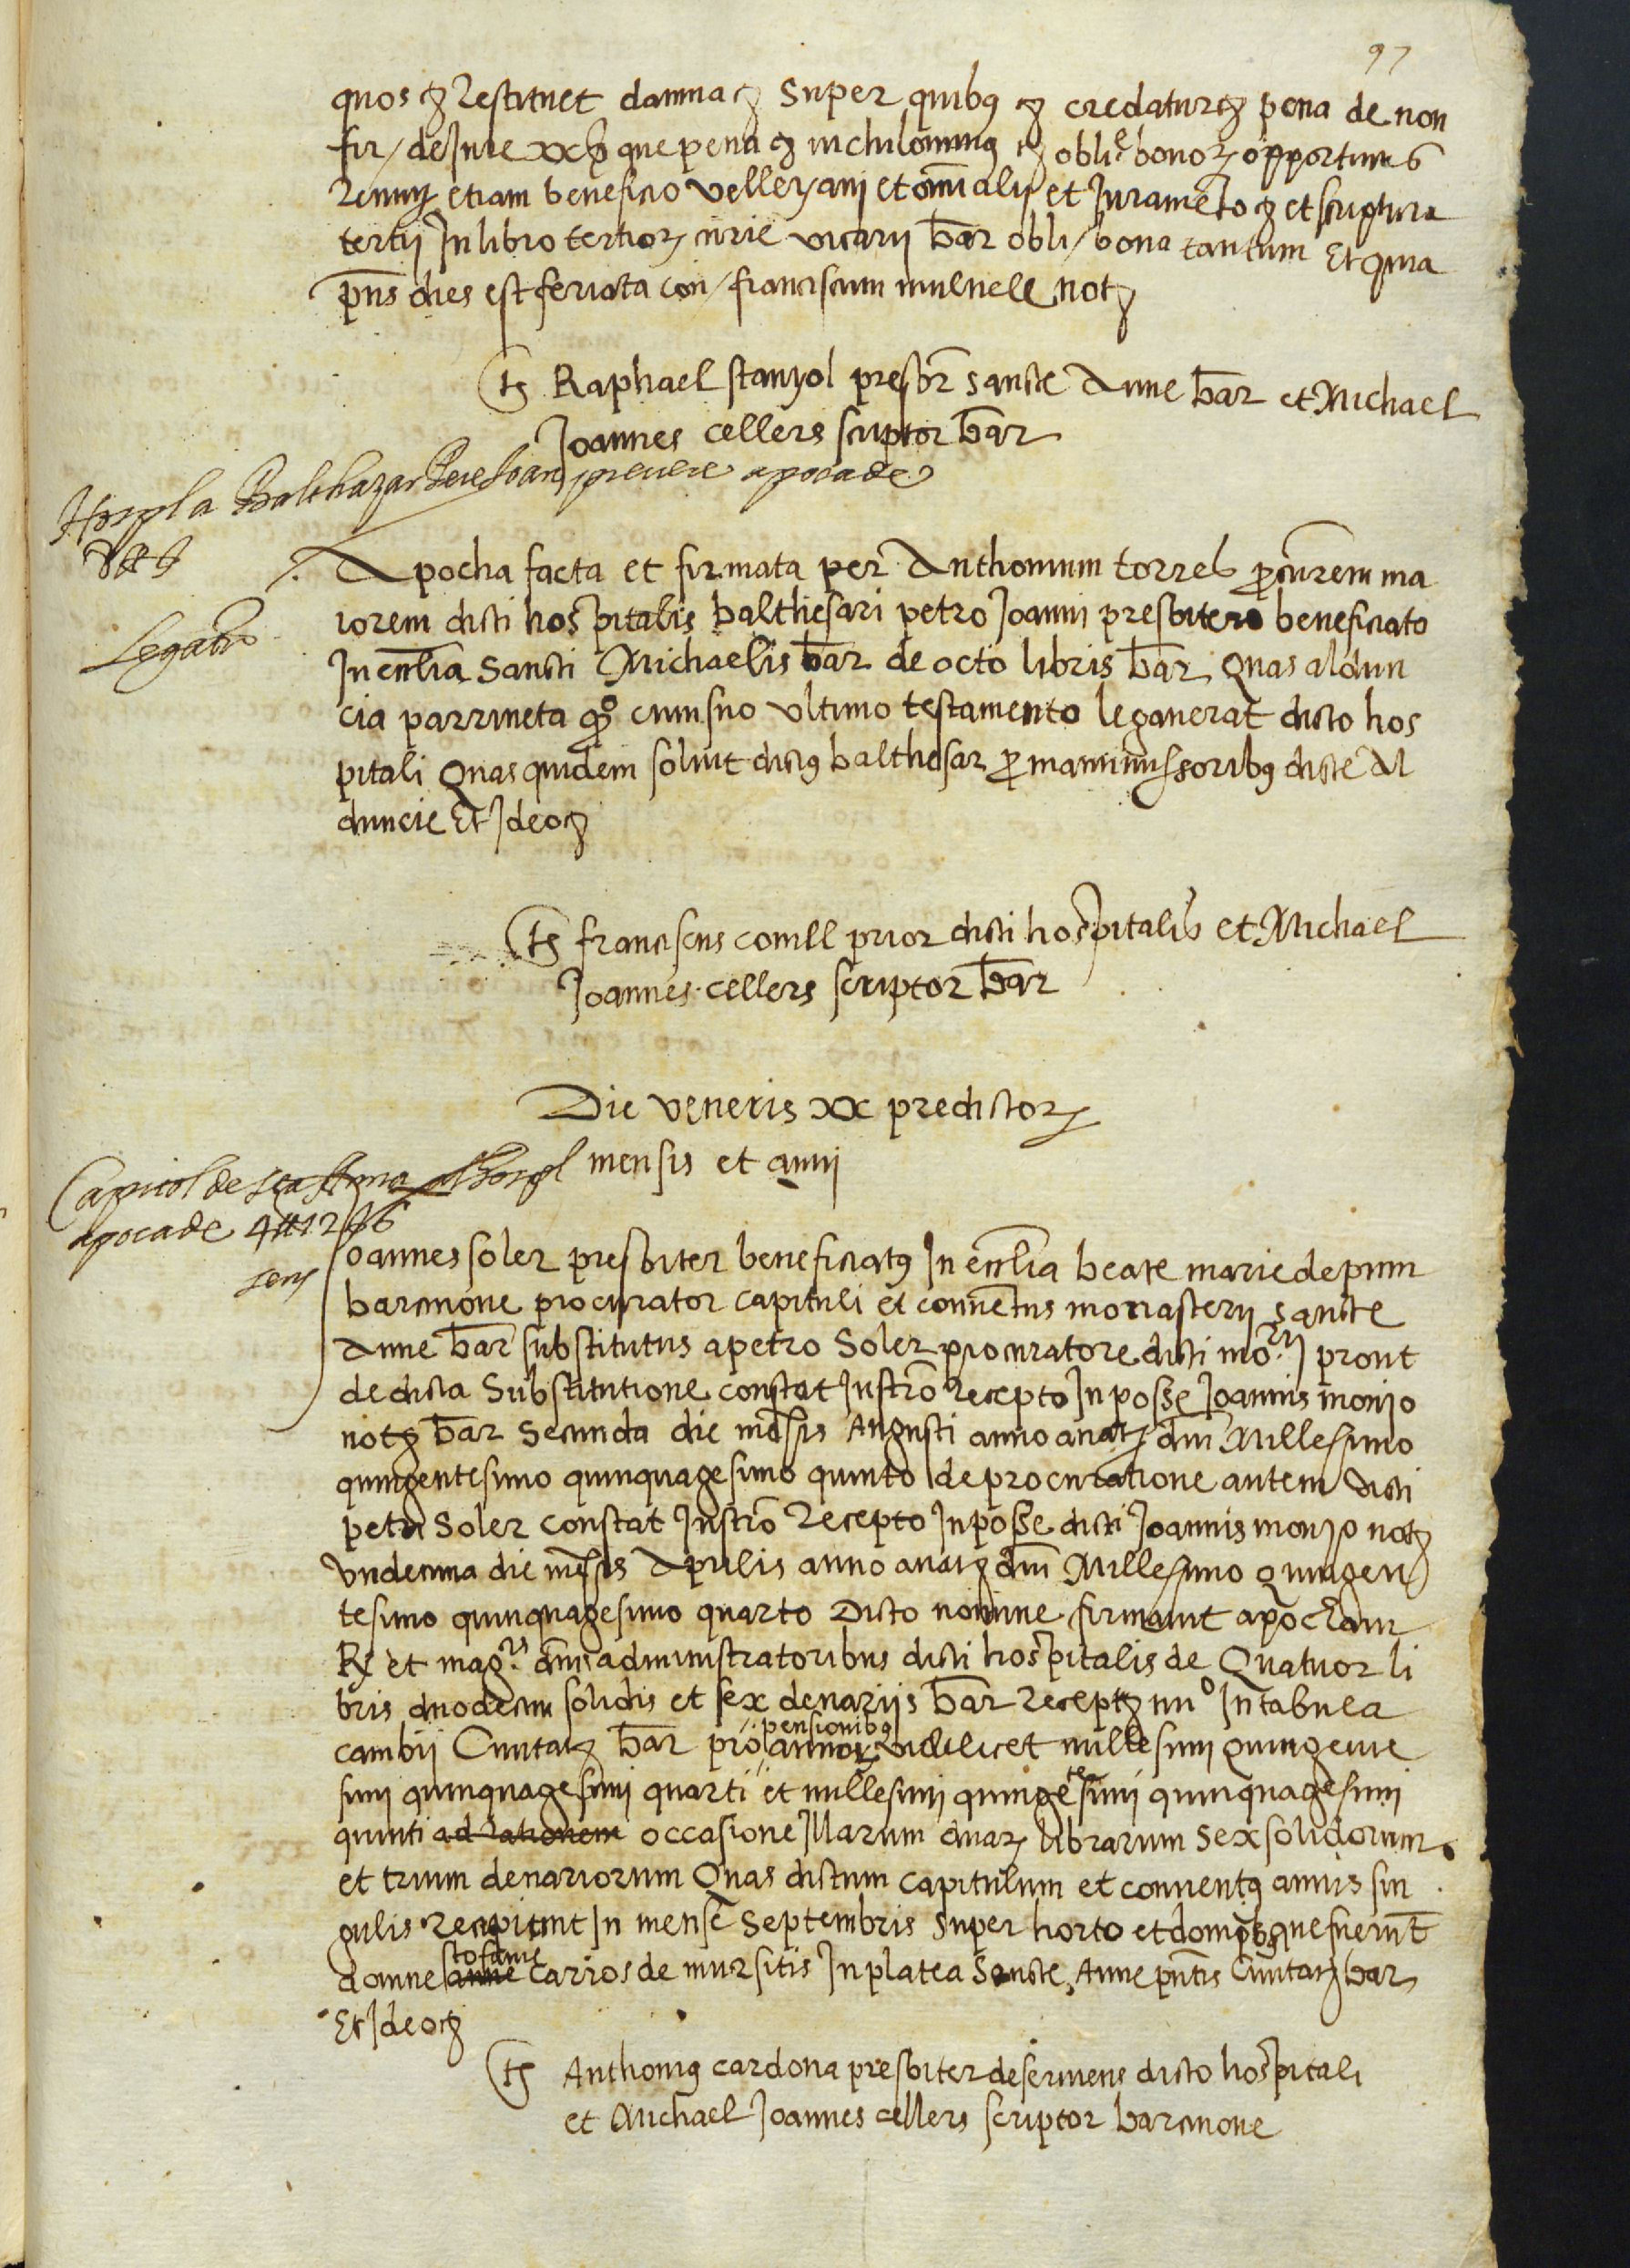 97
quos etc restituet damna etc super quibus etc credatur etc pena de non
fir/ de Jure xxß que pena etc nichilominus etc obli.e bonorum opportunis
renun etiam beneficio velleyani et omni alii et Jurameto etc et scriptura
tertii In libro tertiorum curie vicarii bar obli/ bona tantum Et quia
pns dies est feriata con/ franciscum mulnell not
ts Raphael stanyol presbr sancte Anne bar et Michael
Joannes cellers scriptor bar
Hospl a Balthazar Pere Joan prevere apoca de
8 ₶
Legato
Apocha facta et firmata per Anthonium torres procurem ma
iorem dicti hospitalis balthesari petro Joanni presbitero beneficiato
In eccl̄ia Sancti Michaelis bar de octo libris bar Quas aldun
cia parrineta quo cum suo ultimo testamento legauerat dicto hos
pitali Quas quidem soluit dictus balthesar pro manumissoribus dicte Al
duncie Et Ideo etc
ts franciscus conill prior dicti hospitalis et Michael
Joannes cellers scriptor bar
Die veneris xx predictorum
mensis et anni
Capitol de sta Anna al hospl
apoca de 4₶12ß6
sens
Joannes soler presbiter beneficiatus In eccl̄ia beate marie de pinu
barcinone procurator capituli et conuetus monasterii sancte
Anne bar substitutus a petro Soler procuratore dicti mo.rii prout
de dicta Substitutione constat Instro recepto In posse Joannis monjo
not bar Secunda die mesis Augusti anno a nat dni Millesimo
quingentesimo quinquagesimo quinto de procuratione autem dicti
petri Soler constat Instro recepto In posse dicti Joannis monjo not
undecima die mesis Aprilis anno a nat dni Millesimo quingen
tesimo quinquagesimo quarto Dicto nomine firmauit apocham
R et mag.cis dnis administratoribus dicti hospitalis de Quatuor li
bris duodecim solidis et sex denariis bar recept nu.o In tabula
cambii Ciuitatis bar pro pensionibus annorum videlicet millesimi quingente
simi quinquagesimi quarti et millesimi quingetesimi quinquagesimi
quinti ad rationem occasione Illarum duarum librarum sex solidorum
et trium denariorum Quas dictum capitulum et conuentus annis sin
gulis recipiunt In mense Septembris super horto et domibus que fuerunt
domne stofanie anne carros de mur sitis In platea Sancte Anne pntis Ciuitatis bar
Et Ideo etc
ts Anthonius cardona presbiter deseruiens dicto hospitali
et Michael Joannes cellers scriptor barcinone